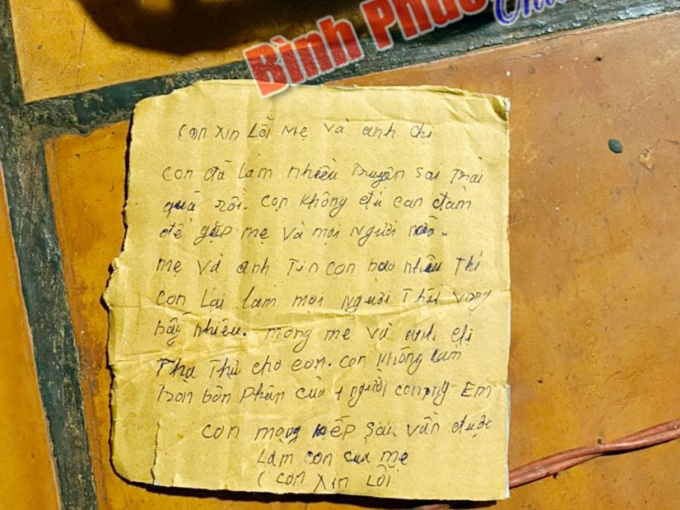 Bình Phước
Con xin Lỗi mẹ và anh chị
con đã làm nhiều truyện sai trái
quá rồi. con không đủ can đảm
để gặp mẹ và mọi người nữa.
mẹ và anh Tin con bao nhiêu Thì
con lại làm mọi người Thất vọng
bấy nhiêu. mong mẹ và anh chị
Tha Thứ cho con. con không làm
Tròn bổn phận của 1 người con, ng Em
con mong kiếp sau vẫn được
Làm con của mẹ
( con xin Lỗi